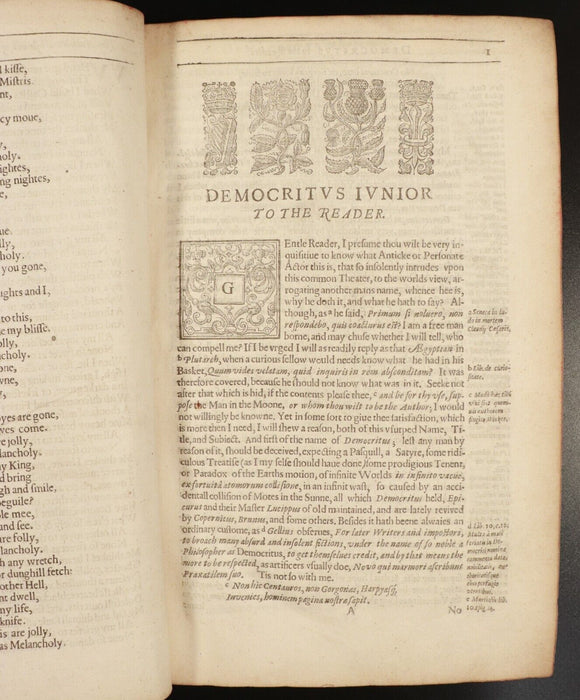 d kisse,
Mistris.
nt,
cy moue,
y,
holy.
ightes,
ng nightes,
e,
ue.
lly,
choly.
you gone,
ughts and I,
to this,
e my blisse.
olly,
ncholy.
one,
owne,
y,
y.
yes are gone,
ves come.
re jolly,
ancholy.
ny King,
d bring
gh and smile,
beguile?
ble mee,
and see.
are folly,
elancholy.
h any wretch,
r dunghill fetch:
nother Hell,
nt dwell,
my life,
knife.
is are jolly,
as Melancholy.
1
DEMOCRITVS IVNIOR
TO THE READER.
GEntle Reader, I presume thou wilt be very in-
quisitiue to know what Anticke or Personate
Actor this is, that so insolently intrudes vpon
this common Theater, to the worlds view, ar-
rogating another mans name, whence hee is,
why he doth it, and what he hath to say? Al-
though, as a he said, Primum si noluero, non
respondebo, quis coacturus est? I am a free man
borne, and may chuse whether I will tell, who
can compell me? If I be vrged I will as readily reply as that Ægyptian in
b Plutarch, when a curious fellow would needs know what he had in his
Basket, Quum vides velatam, quid inquiris in rem absconditam? It was
therefore covered, because he should not know what was in it. Seeke not
after that which is hid, if the contents please thee, c and be for thy vse, sup-
pose the Man in the Moone, or whom thou wilt to be the Author; I would
not willingly be knowne. Yet in some sort to giue thee satisfaction, which
is more then I need, I will shew a reason, both of this vsurped Name, Ti-
tle, and Subiect. And first of the name of Democritus; lest any man by
reason of it, should be deceived, expecting a Pasquill, a Satyre, some ridi-
culous Treatise (as I my selfe should haue done) some prodigious Tenent,
or Paradox of the Earths motion, of infinite Worlds in infinito vacuo,
ex fortuitâ atomorum collisione, in an infinit wast, so caused by an acci-
dentall collision of Motes in the Sunne, all which Democritus held, Epi-
curus and their Master Lucippus of old maintained, and are lately revived
by Copernicus, Brunus, and some others. Besides it hath beene alwaies an
ordinary custome, as d Gellius obserues, For later Writers and impostors,
to broach many absurd and insolent fictions, vnder the name of so noble a
Philosopher as Democritus, to get themselues credit, and by that means the
more to be respected, as artificers vsually doe, Novo qui marmore ascribunt
Praxatilem suo. 'Tis not so with me.
e Non hîc Centauros, non Gorgonas, Harpyasq;
Invenies, hominem pagina nostra sapit.
a Seneca in lu-
do in mortem
Claudij Cæsaris.
b Lib. de curio-
sitate.
d Lib. 10. c. 12.
e Martialis lib.
10. epig. 14.
A
No